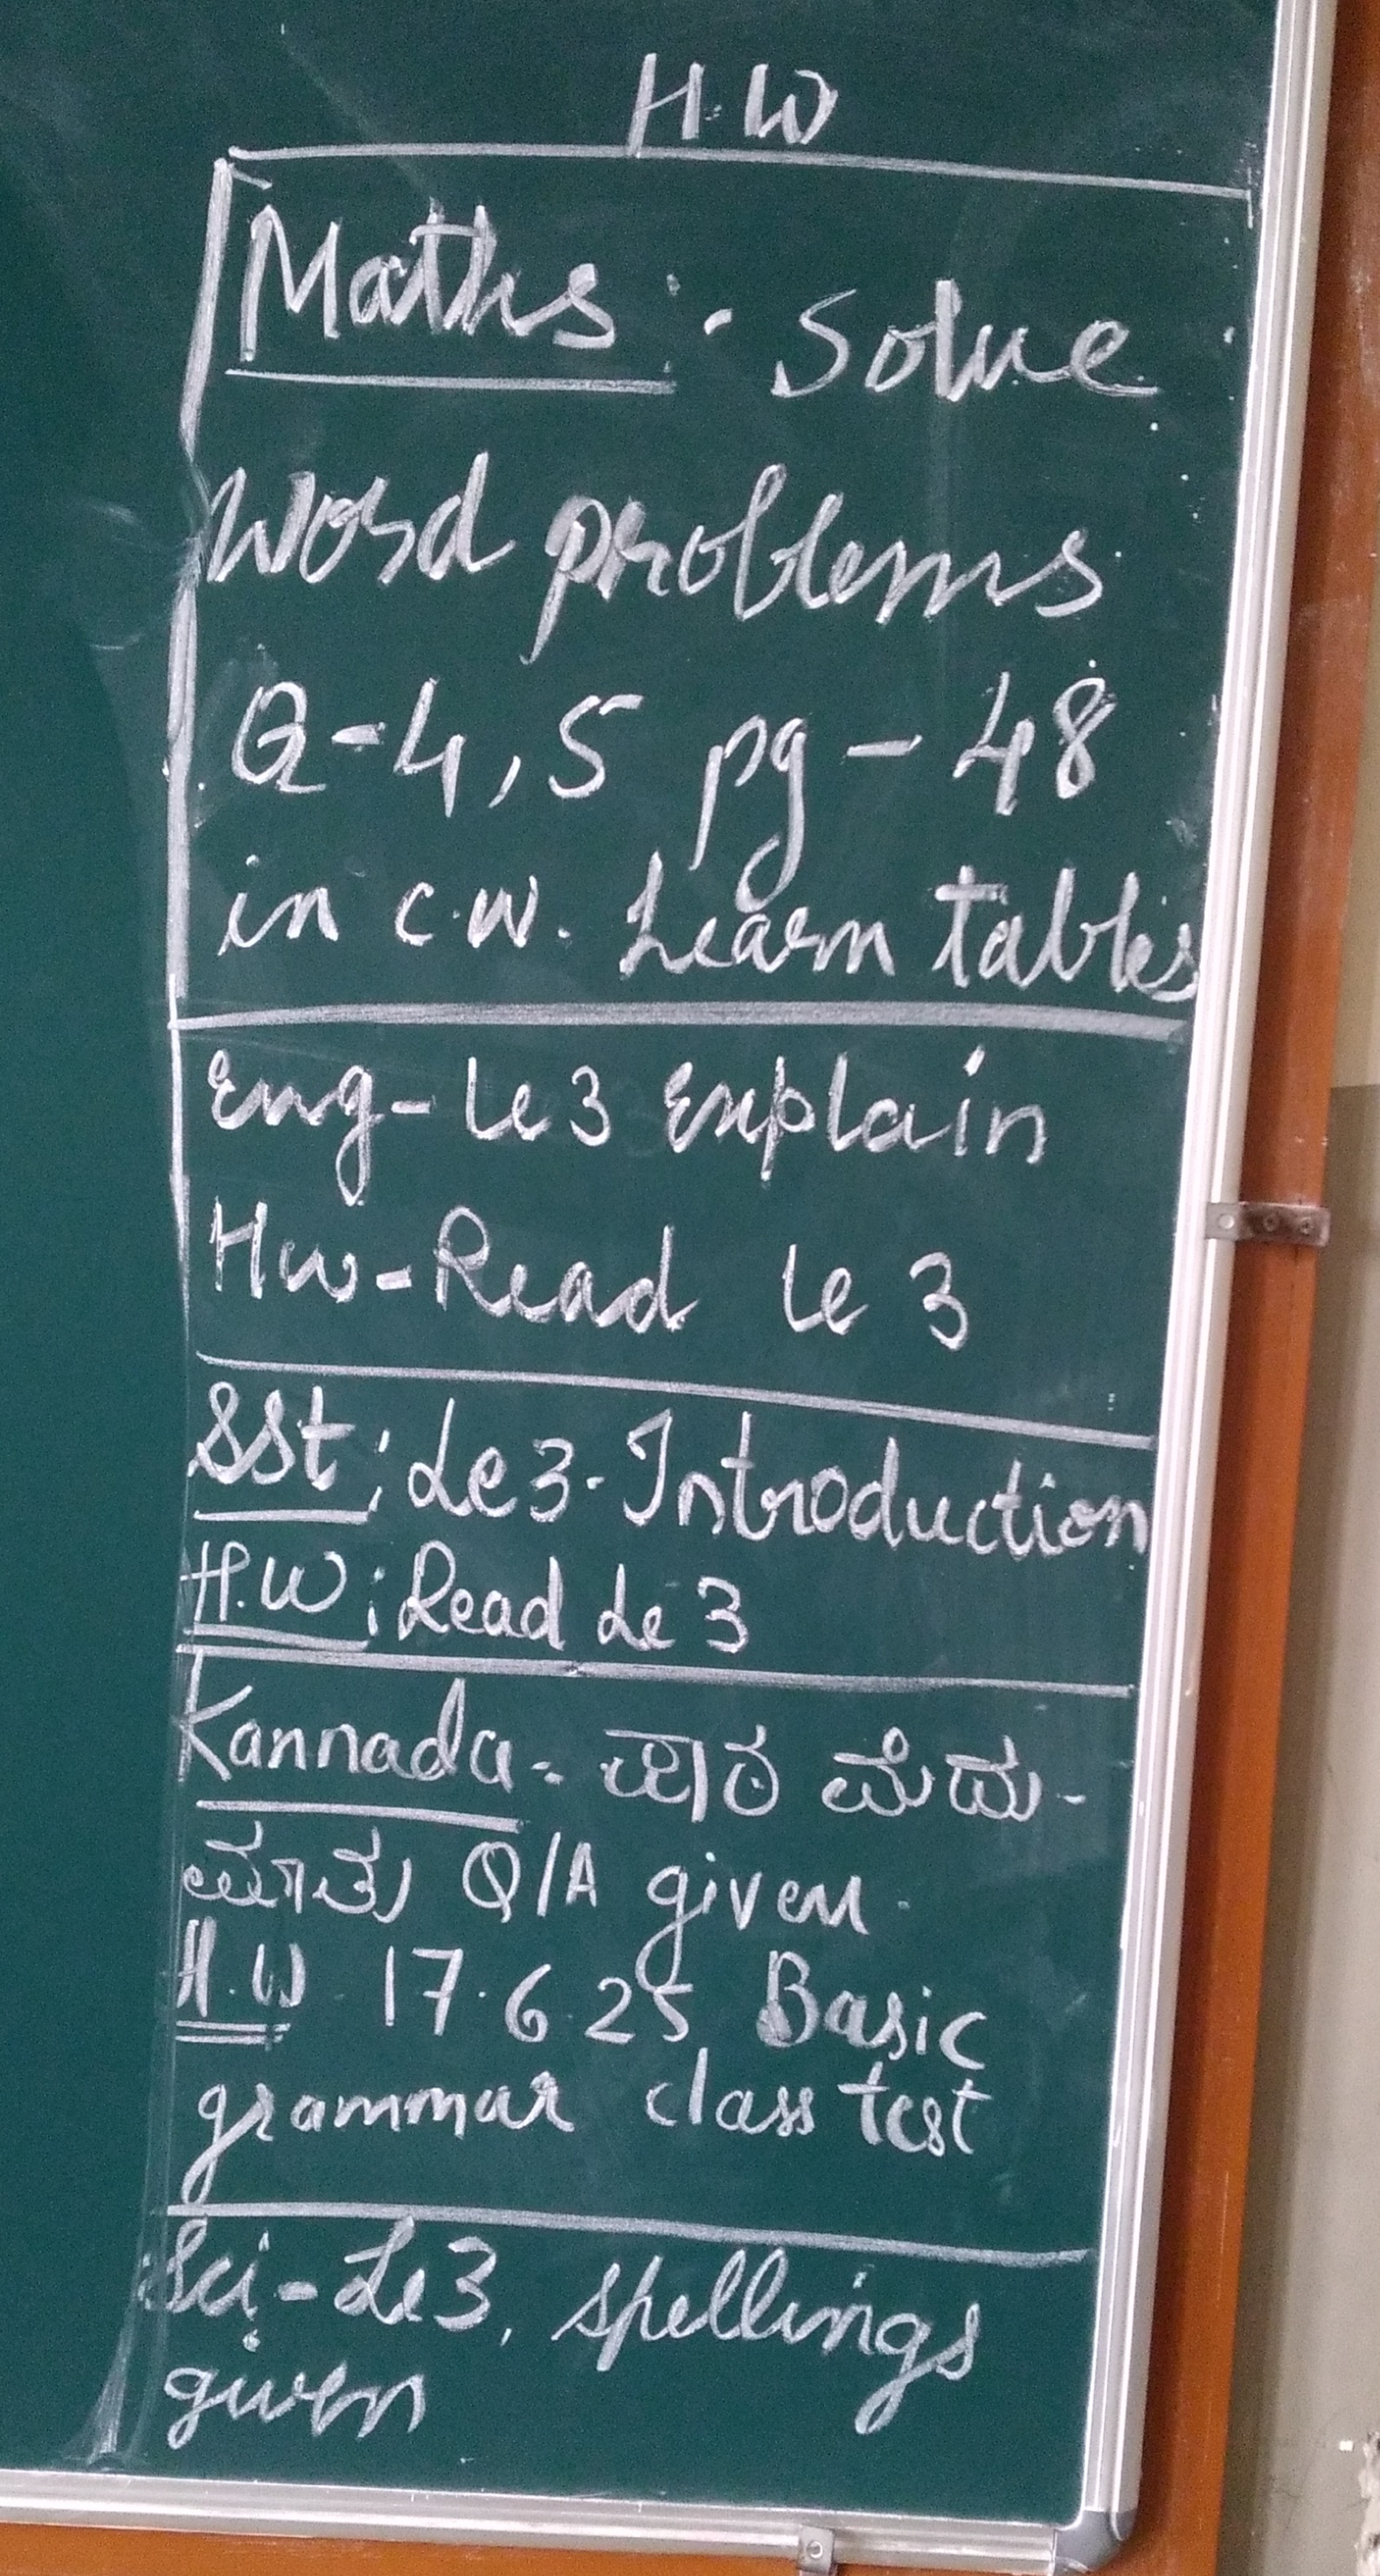 H.W
Maths: Solve
Word problems
Q-4, 5 pg - 48
in c.w. Learn tables
Eng- Le 3 Explain
Hw- Read le 3
SSt: Le 3. Introduction
H.W: Read Le 3
Kannada - ಪಾಠ ಮೆದು-
ಮಾತು Q/A given.
H.W 17.6.25 Basic
grammar class test
Sci - Le 3, spellings
given